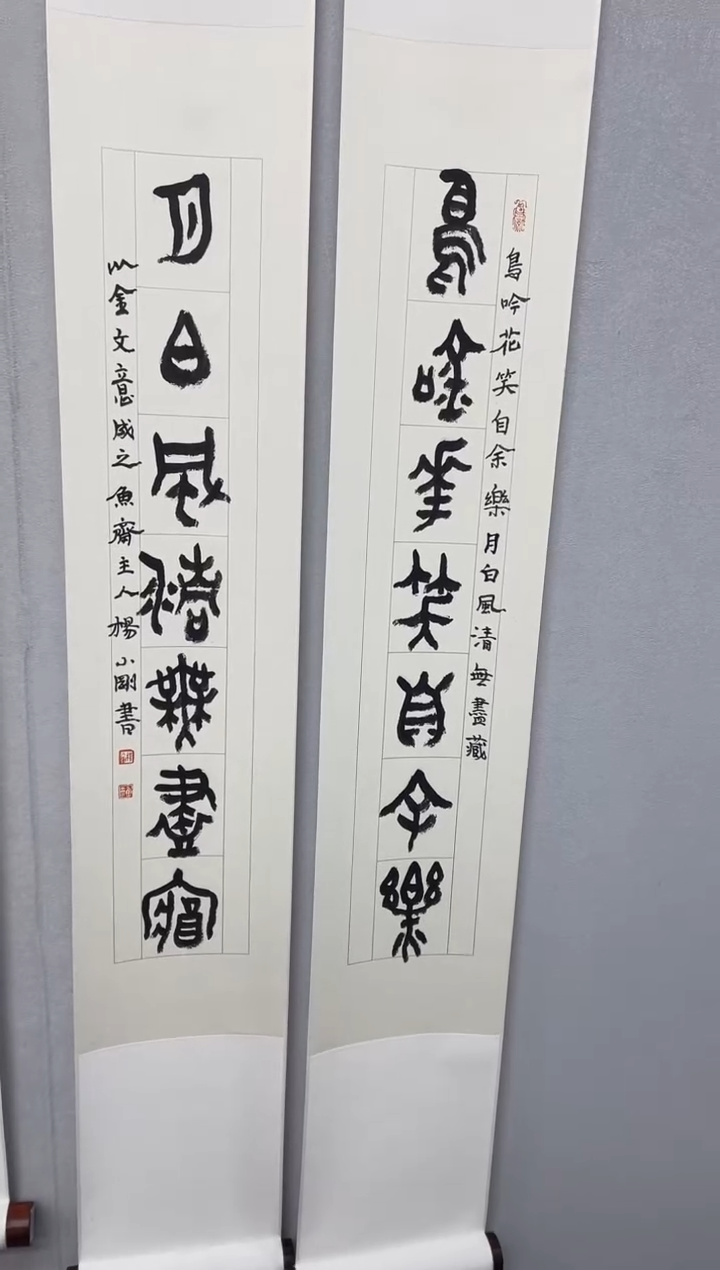 鳥唫華笑自余樂
鳥吟花笑自余樂月白風清無盡藏
月白風清無盡藏
以金文意成之魚齋主人楊小剛書